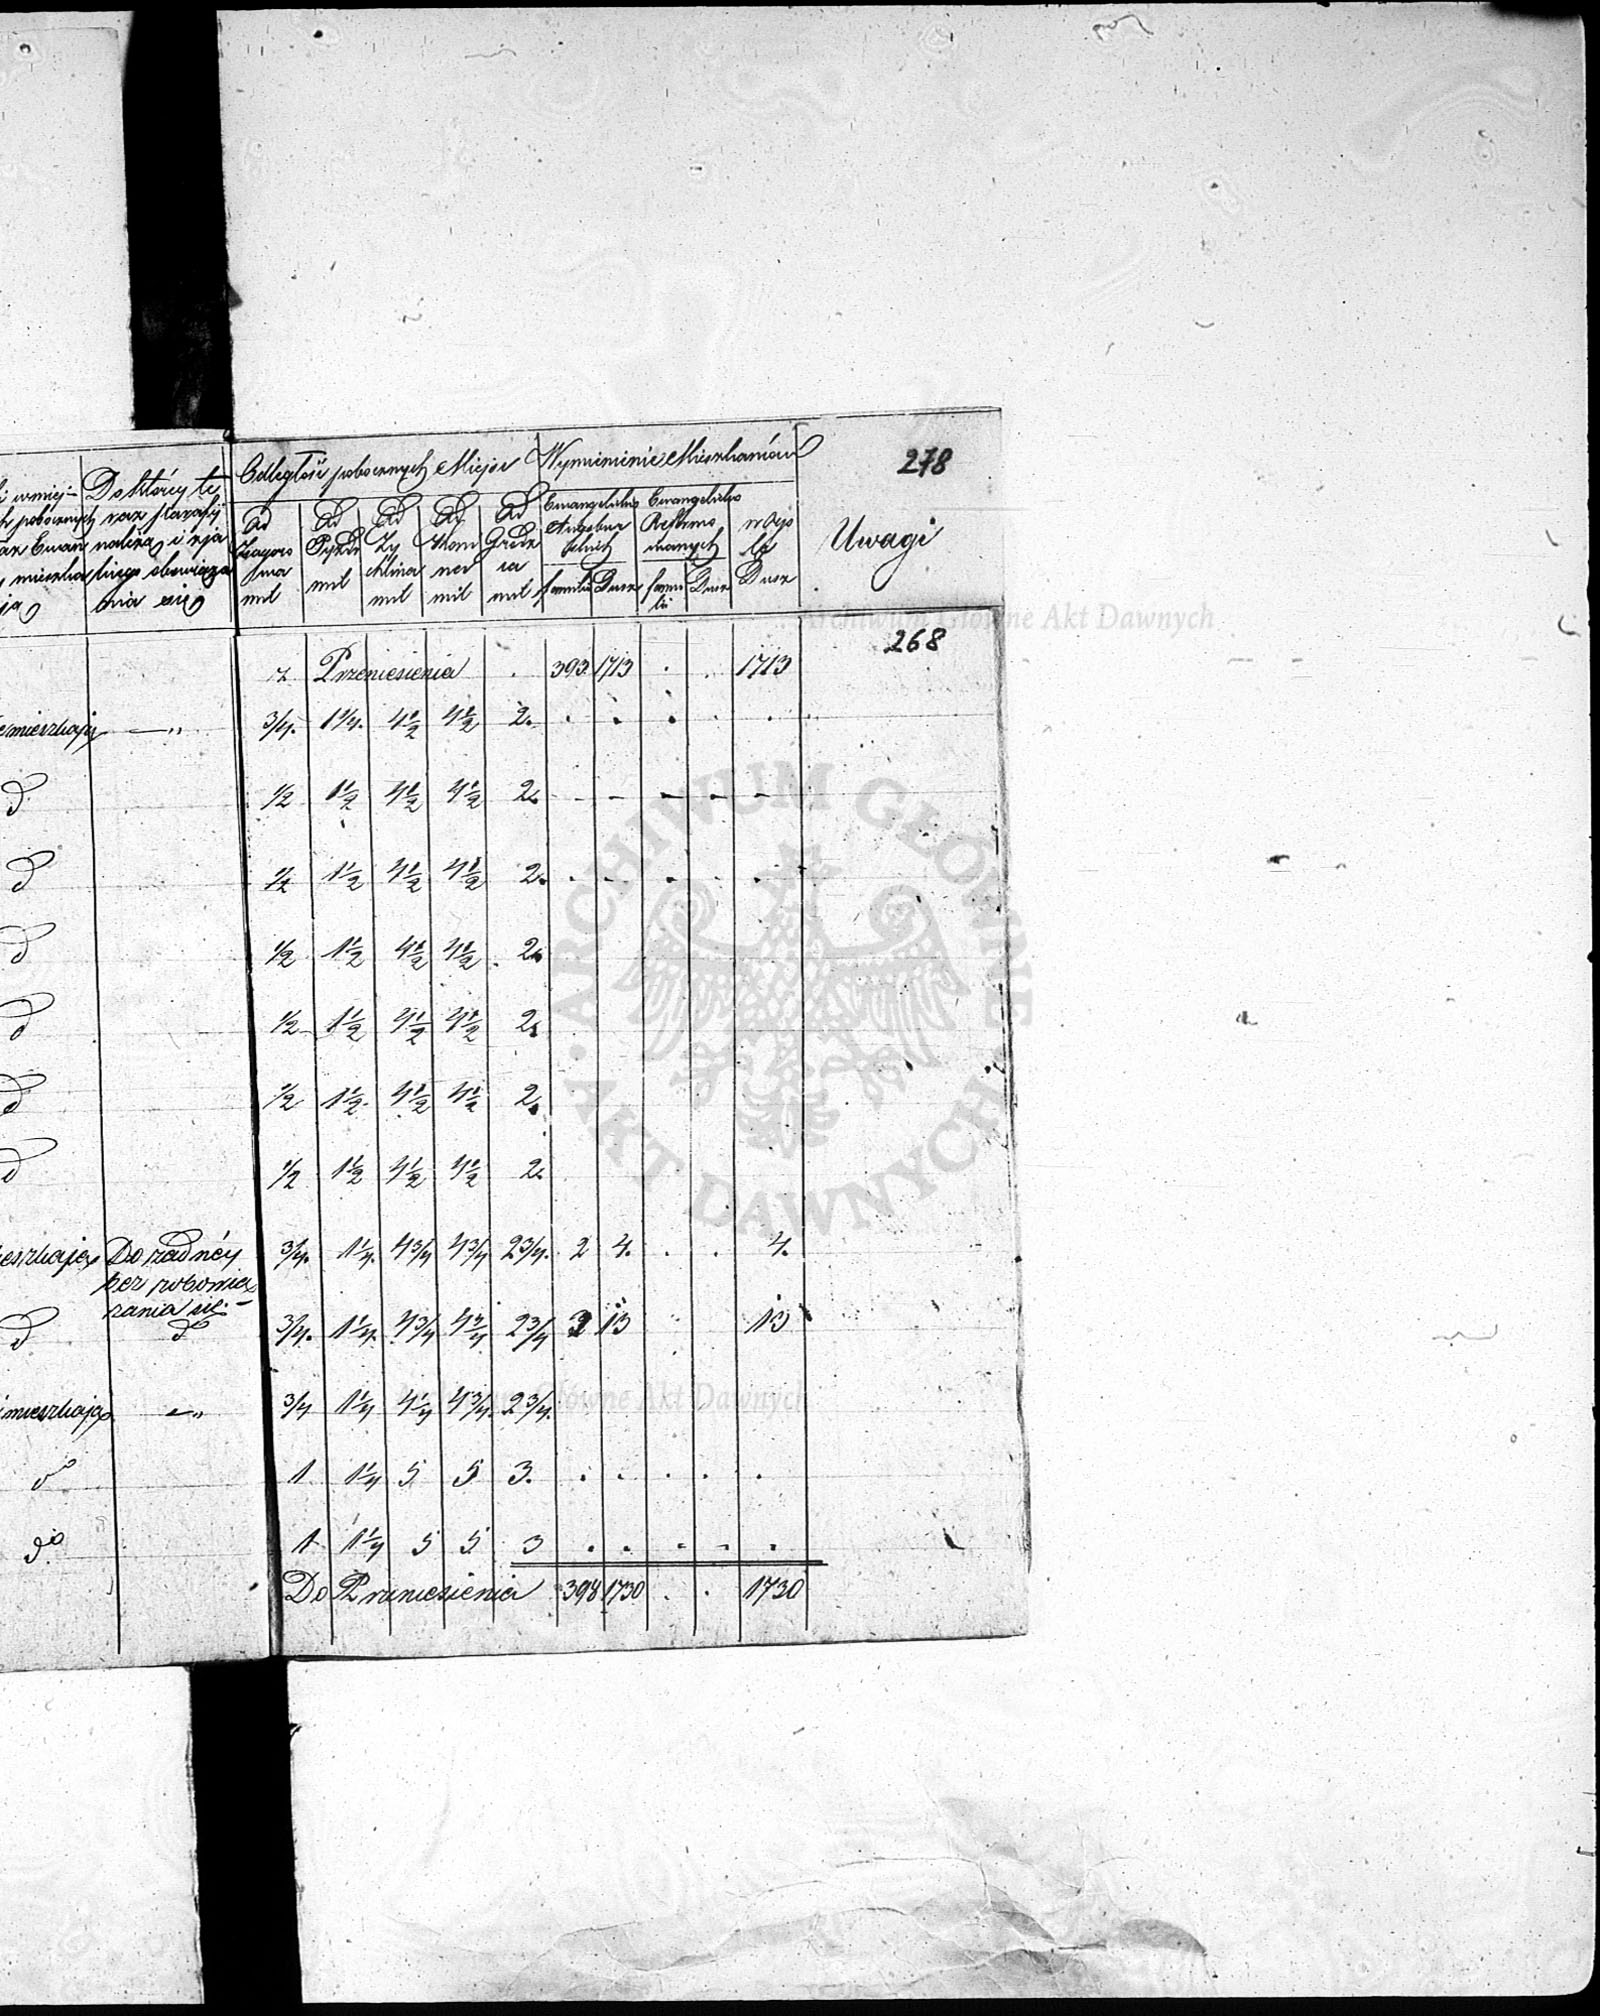 278
Odległość pobocznych Miejsc Wymienienie Mieszkańców
Do których te
raz Parafij
należą i zja
kiego obowiąza
nia się
mieszka
ją
Od
Zagoro
wa
mil
Od
Pyzdr
mil
Od
Zy
chlina
mil
Od
Kom
nor
mil
Od
Grodz
ca
mil
Ewangelików
Augsbur
skich
familii Dusz
Ewangelików
Reformo
wanych
fami
lii
Dusz
w Ogo
le
Dusz
Uwagi
268
z Przeniesienia . 393 1713 . . 1713
mieszkają —„ 3/4. 1 1/4. 4 1/2 4 1/2 2. . . . . .
d 1/2 1 1/2 4 1/2 4 1/2 2. - - - - -
d 1/2 1 1/2 4 1/2 4 1/2 2. . . . . .
d 1/2 1 1/2 4 1/2 4 1/2 2.
d 1/2 1 1/2 4 1/2 4 1/2 2.
d 1/2 1 1/2. 4 1/2 4 1/2 2.
d 1/2 1 1/2 4 1/2 4 1/2 2.
mieszkają Do żadnéy 3/4. 1 1/4. 4 3/4 4 3/4 2 3/4. 2 4. . . 4.
bez zobowią
zania się.-
d do 3/4. 1 1/4. 4 3/4 4 3/4 2 3/4 3 13 13
mieszkają —„ 3/4 1 1/4 4 1/4 4 3/4. 2 3/4.
do 1 1 1/4 5 5 3. . . . . .
do 1 1 1/4 5 5 3 . . . . .
Do Przeniesienia 398 1730 . . 1730
Archiwum Główne Akt Dawnych
ARCHIWUM GŁÓWNE · AKT DAWNYCH ·
Archiwum Główne Akt Dawnych